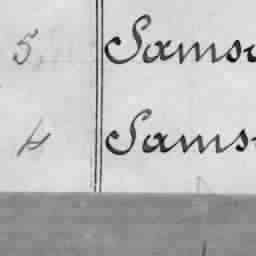 5. Sams
4 Sams